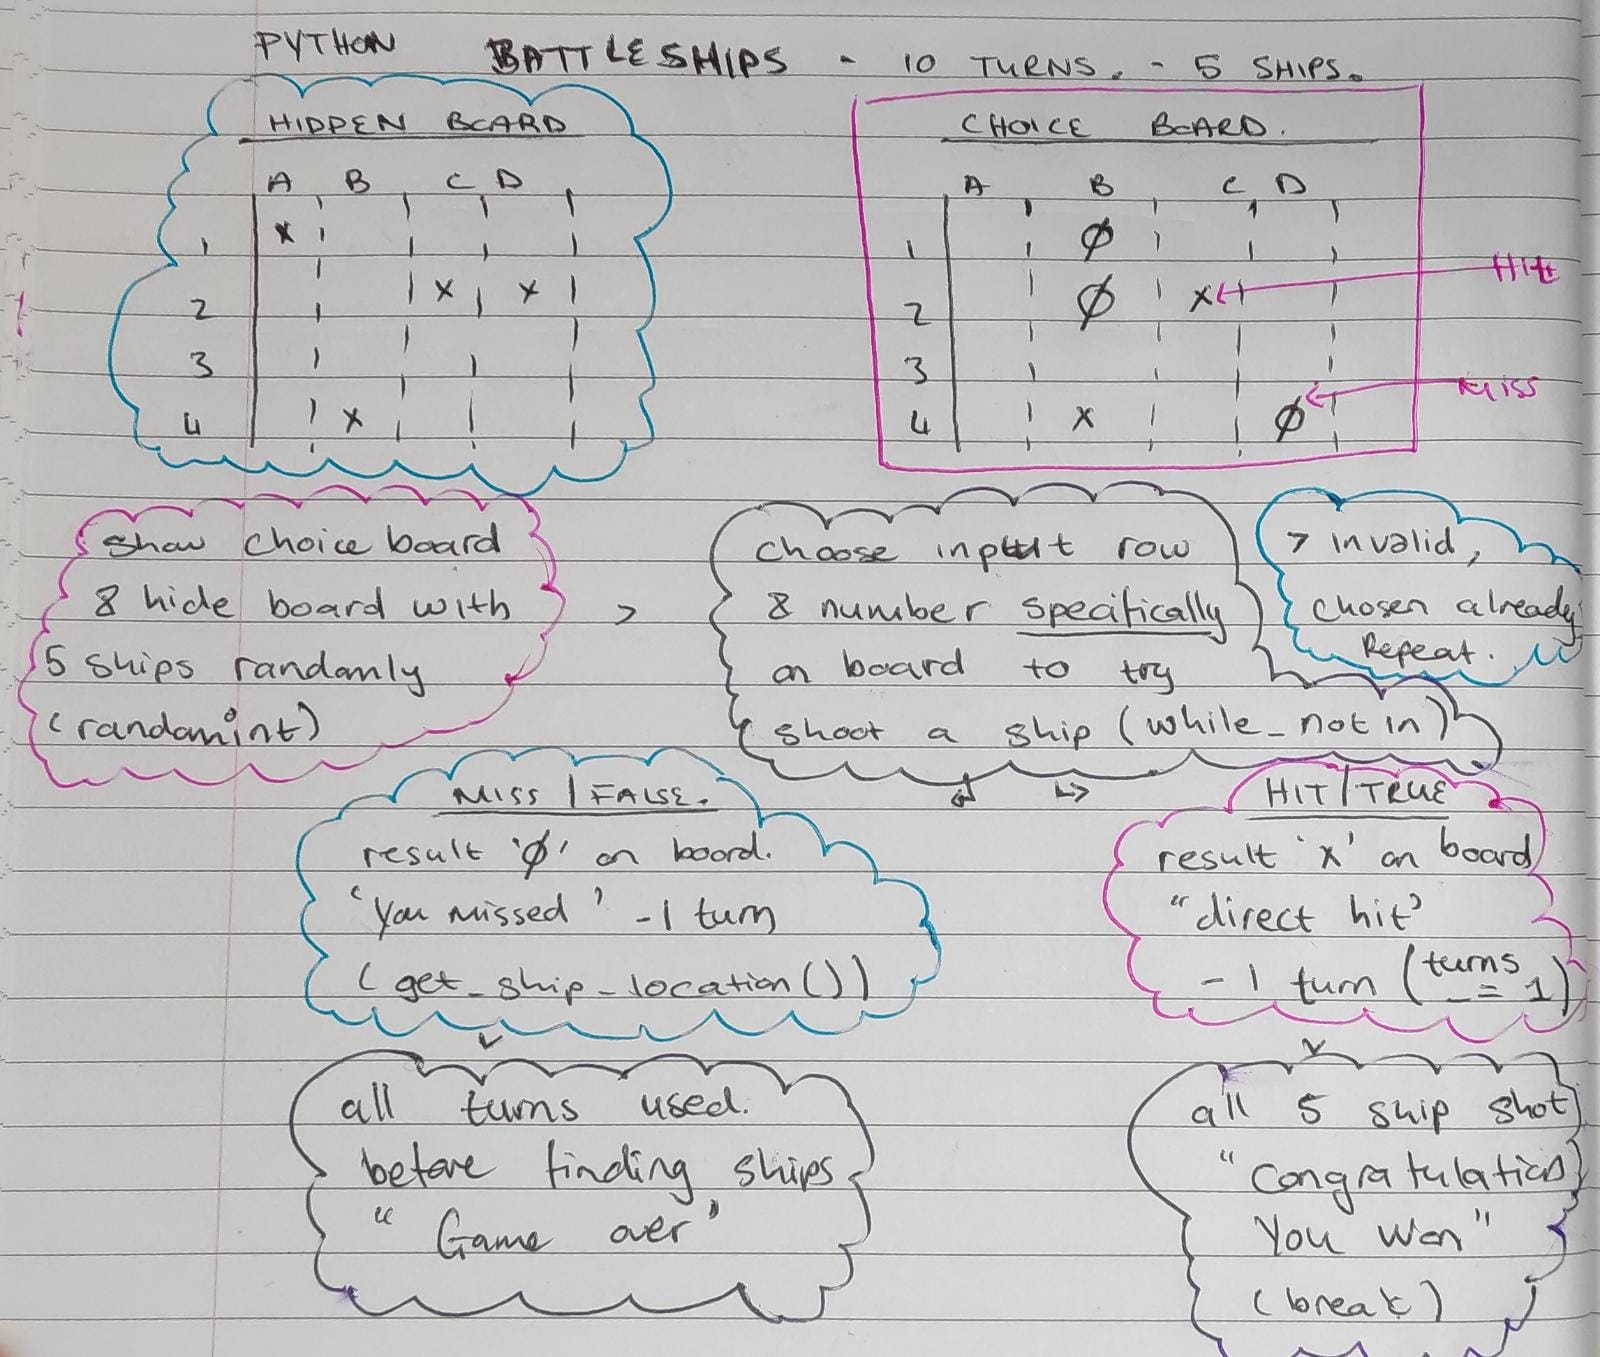 PYTHON BATTLESHIPS - 10 TURNS. - 5 SHIPS.
HIDDEN BOARD
A B C D
1 x
2 x x
3
4 x
CHOICE BOARD.
A B C D
1 Ø
2 Ø x
3
4 x Ø
Hit
Miss
show choice board
& hide board with
5 ships randomly
(randomint)
>
choose input row
& number specifically
on board to try
shoot a ship (while_not in)
> invalid,
chosen already
Repeat.
MISS / FALSE.
result 'Ø' on board.
'You missed' -1 turn
(get_ship_location())
HIT/TRUE
result 'x' on board
"direct hit'
- 1 turn (turns
-= 1)
all turns used.
before finding ships
"Game over'
all 5 ship shot
"Congratulations
You Won"
(break)